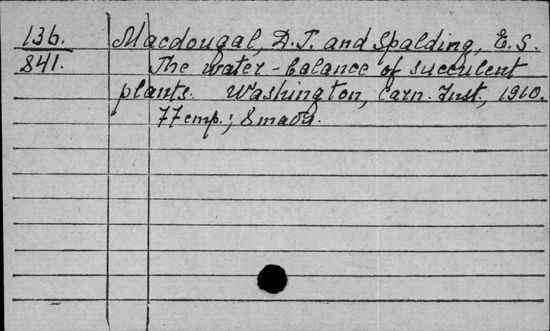 136. Macdougal, D.T. and Spalding, E.S.
841. The water-balance of succulent
plants. Washington, Carn. Inst., 1910.
77 стр.; 8 табл.